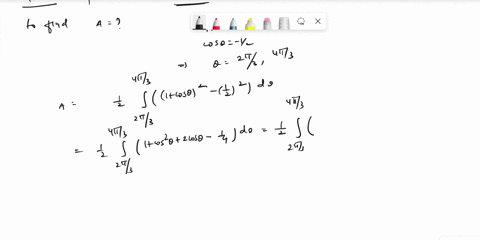 to find A = ?
cosθ = -1/2
⇒ θ = 2π/3, 4π/3
A = 1/2 ∫_{2π/3}^{4π/3} ((1+cosθ)² - (1/2)²) dθ
= 1/2 ∫_{2π/3}^{4π/3} (1+cos²θ+2cosθ - 1/4) dθ = 1/2 ∫_{2π/3}^{4π/3} (